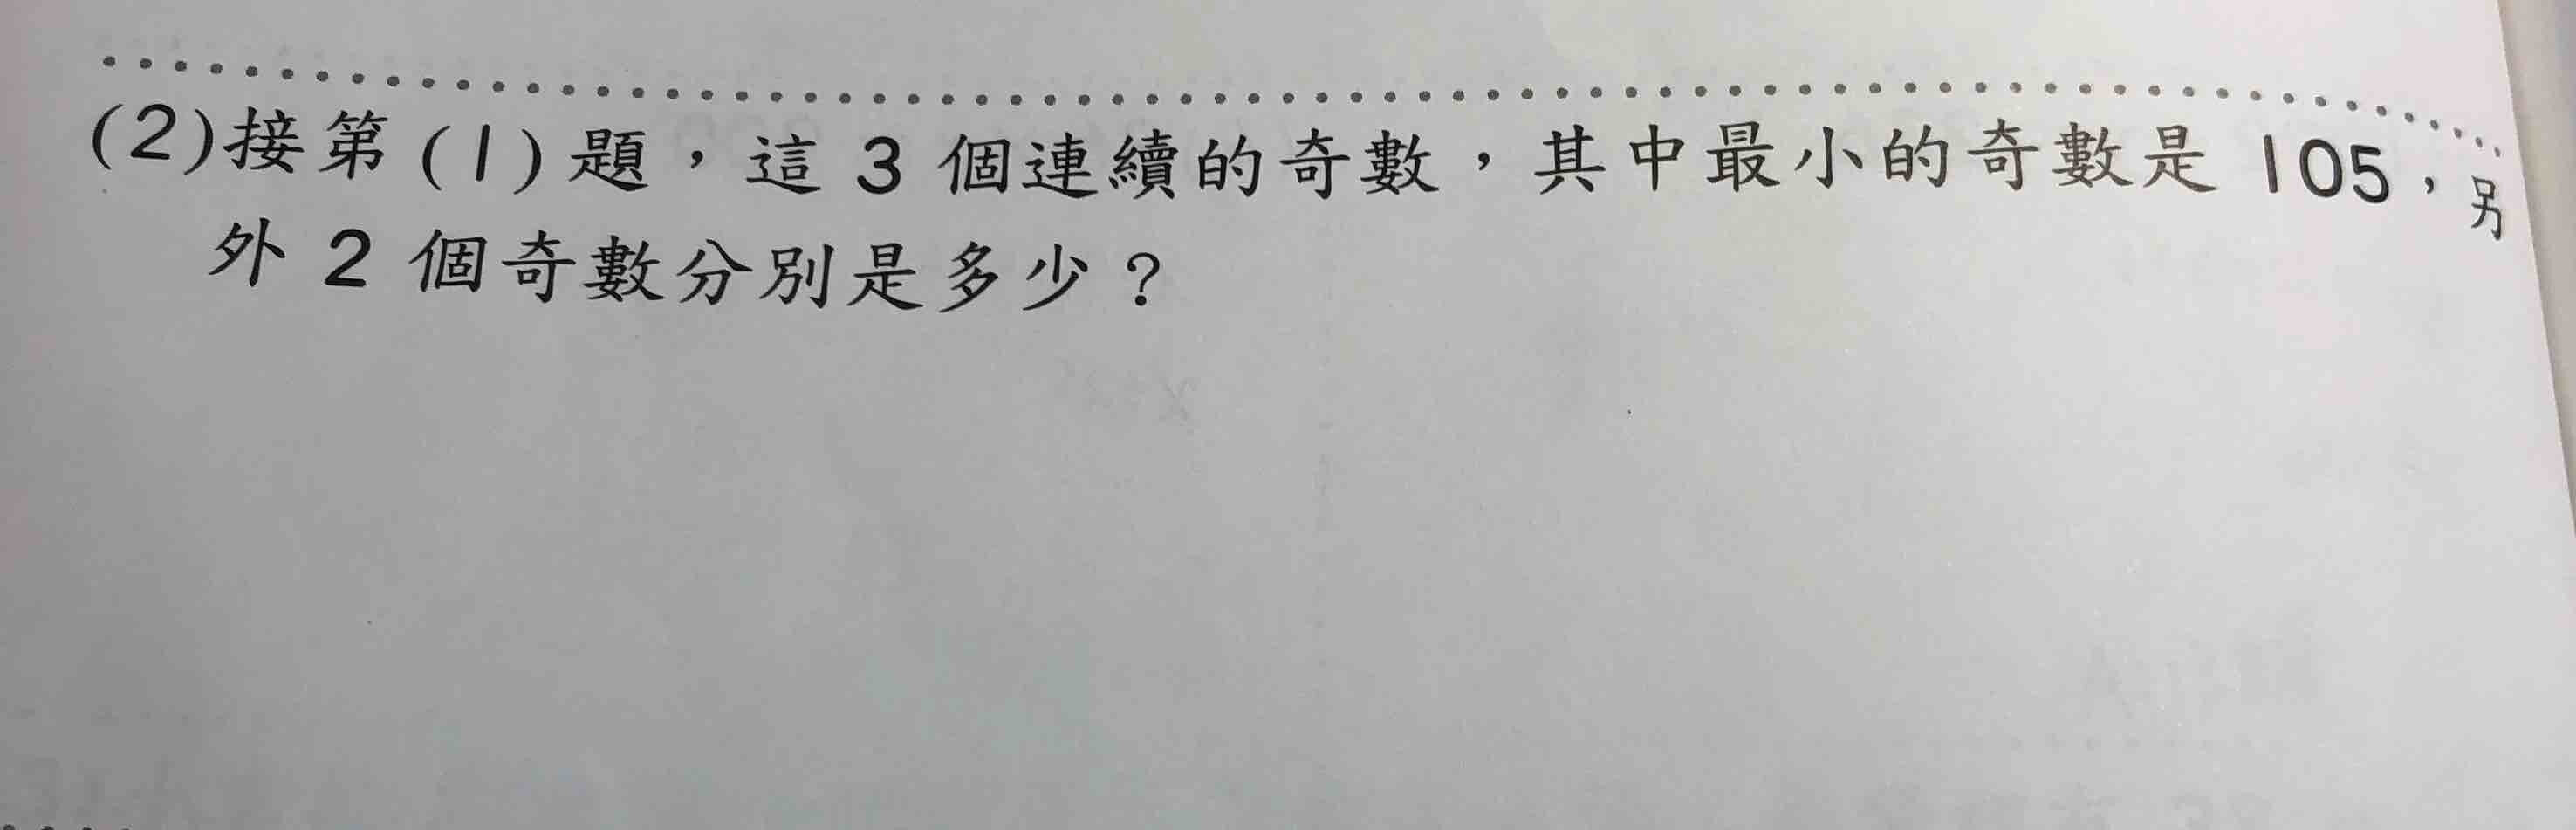 (2)接第(1)題，這 3 個連續的奇數，其中最小的奇數是 105，另
外 2 個奇數分別是多少？